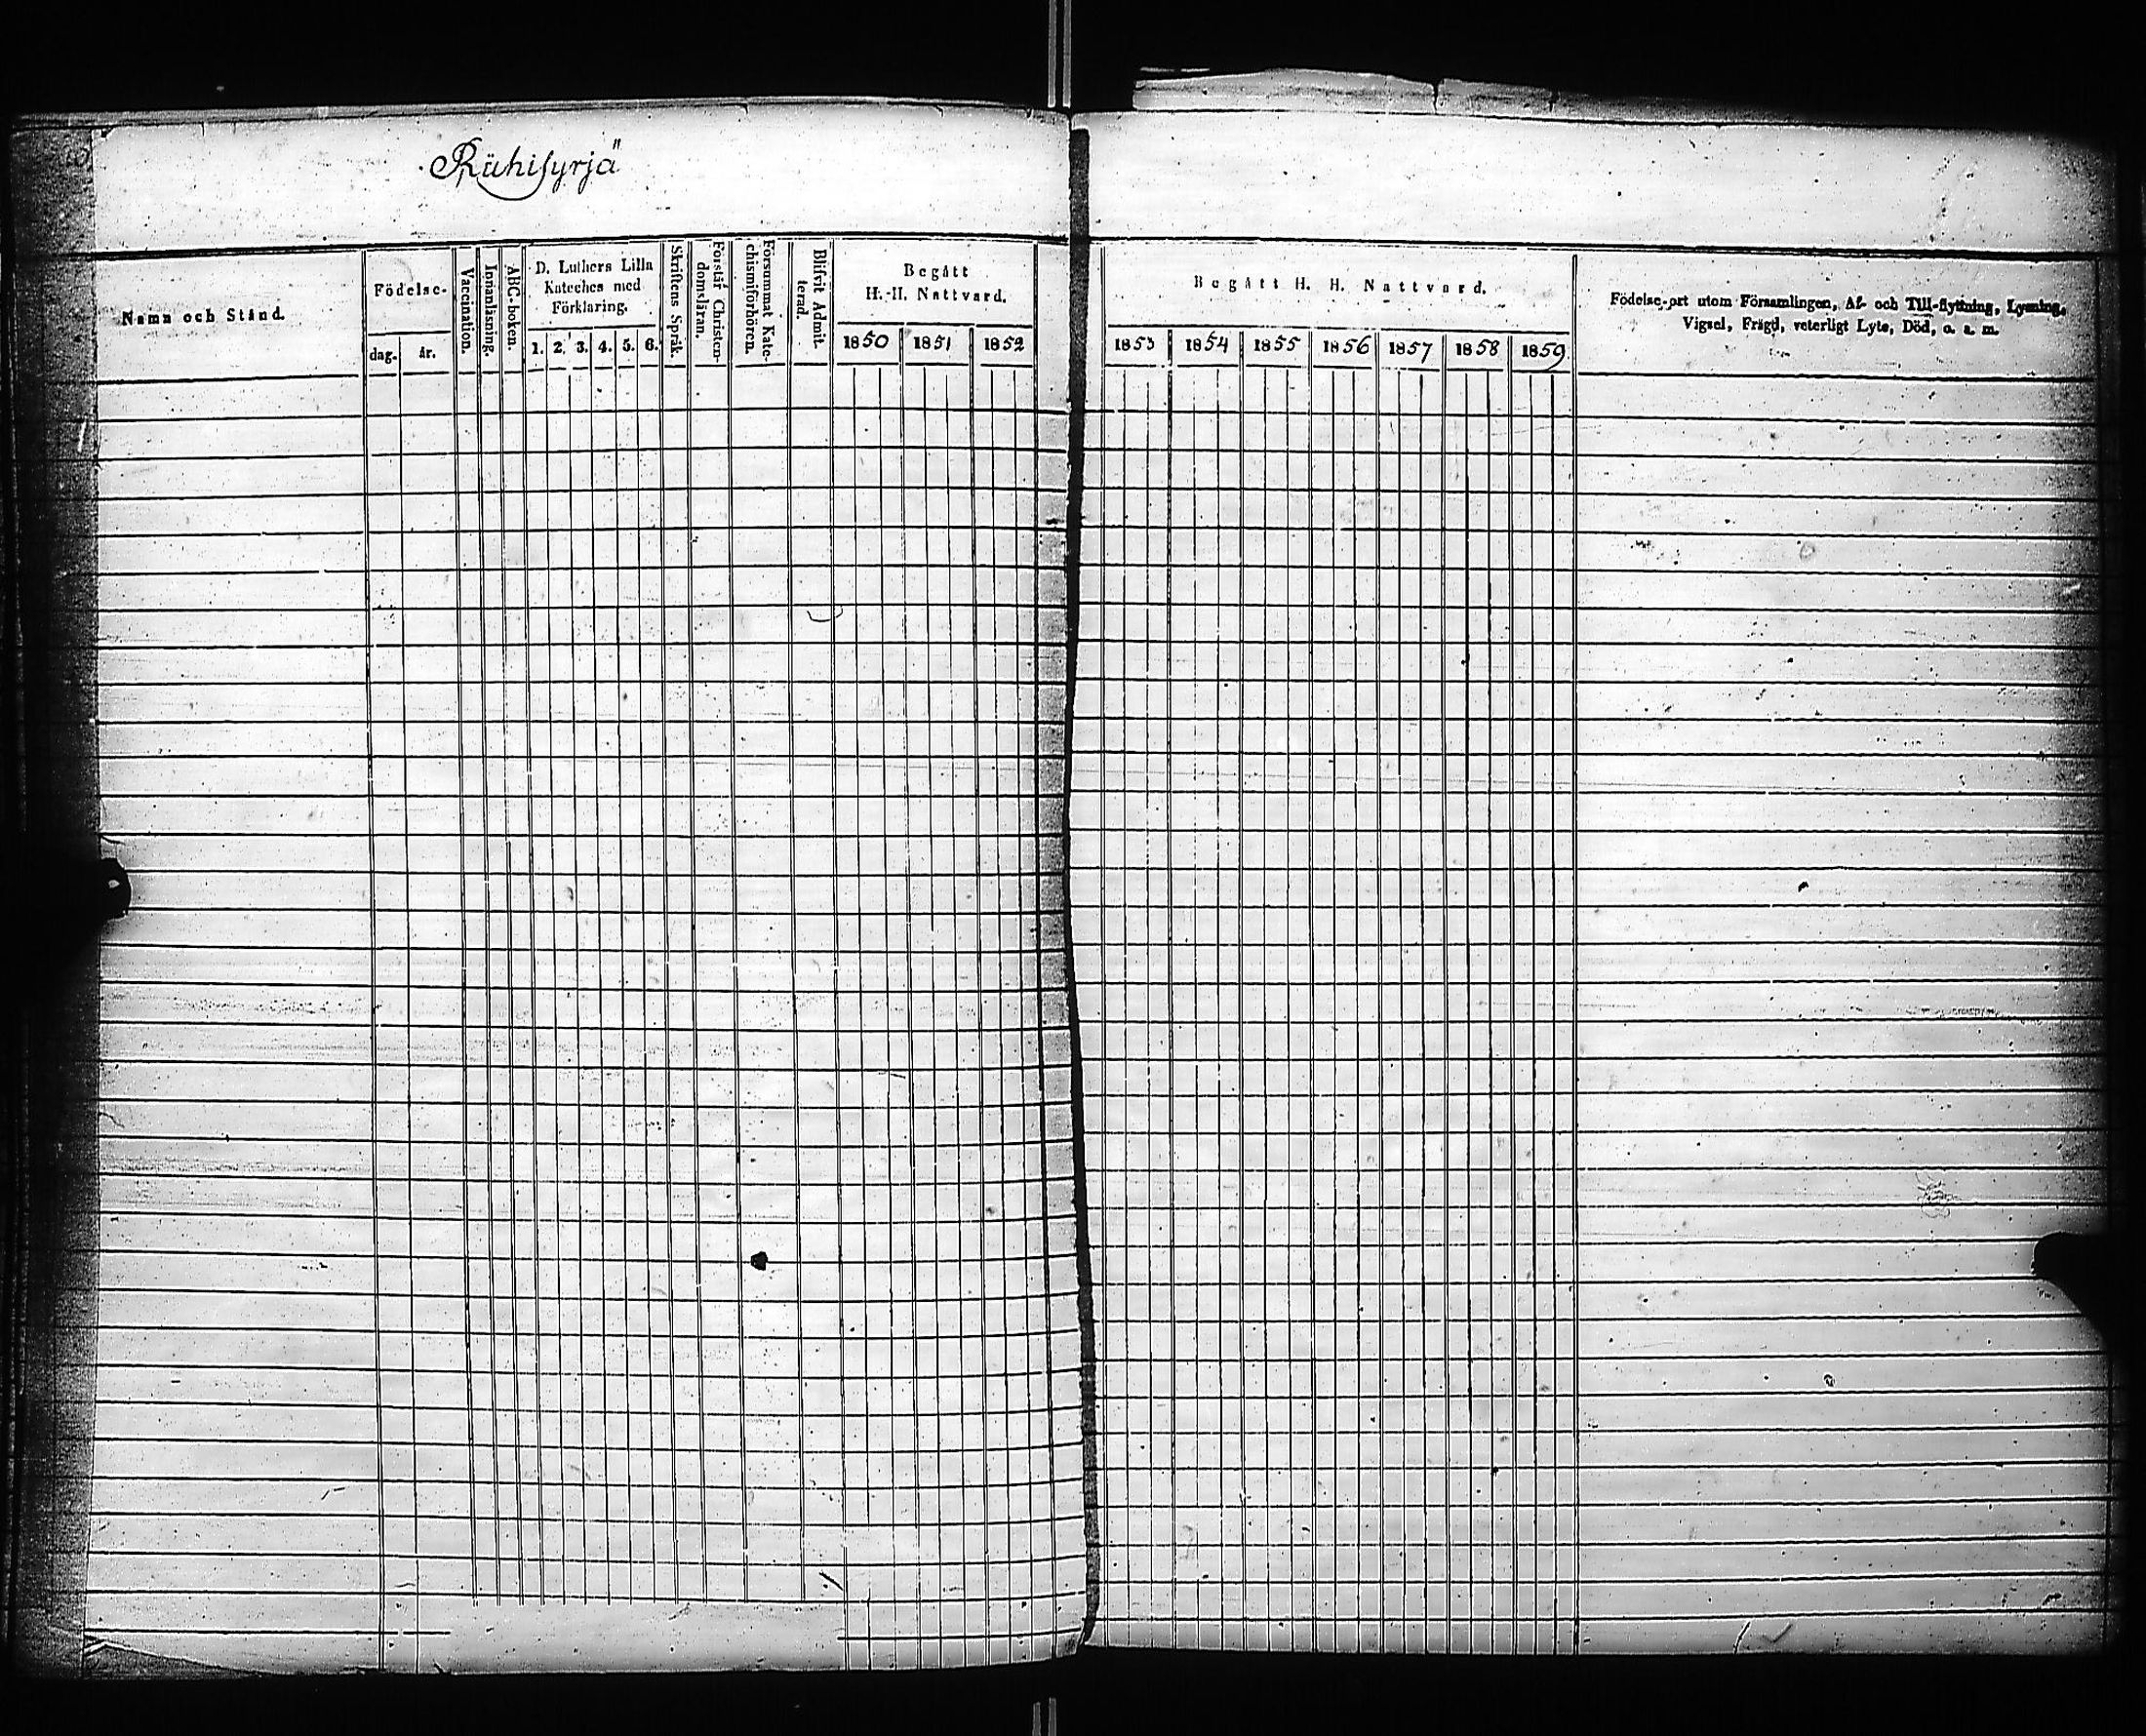 Rühisyrjä
Namn och Stånd.
Födelse-
dag.
år.
Vaccination.
Innanläsning.
ABC-boken.
D. Luthers Lilla
Kateches med
Förklaring.
1. 2. 3. 4. 5. 6.
Skriftens Språk.
Förstår Christen-
domsläran.
Försummat Kate-
chismiförhören.
Blifvit Admit-
terad.
Begått
H. H. Nattvard.
1850 1851 1852
Begått H. H. Nattvard.
1853 1854 1855 1856 1857 1858 1859
Födelse-ort utom Församlingen, Af- och Till-flyttning, Lysning,
Vigsel, Frägd, veterligt Lyte, Död, o. s. m.